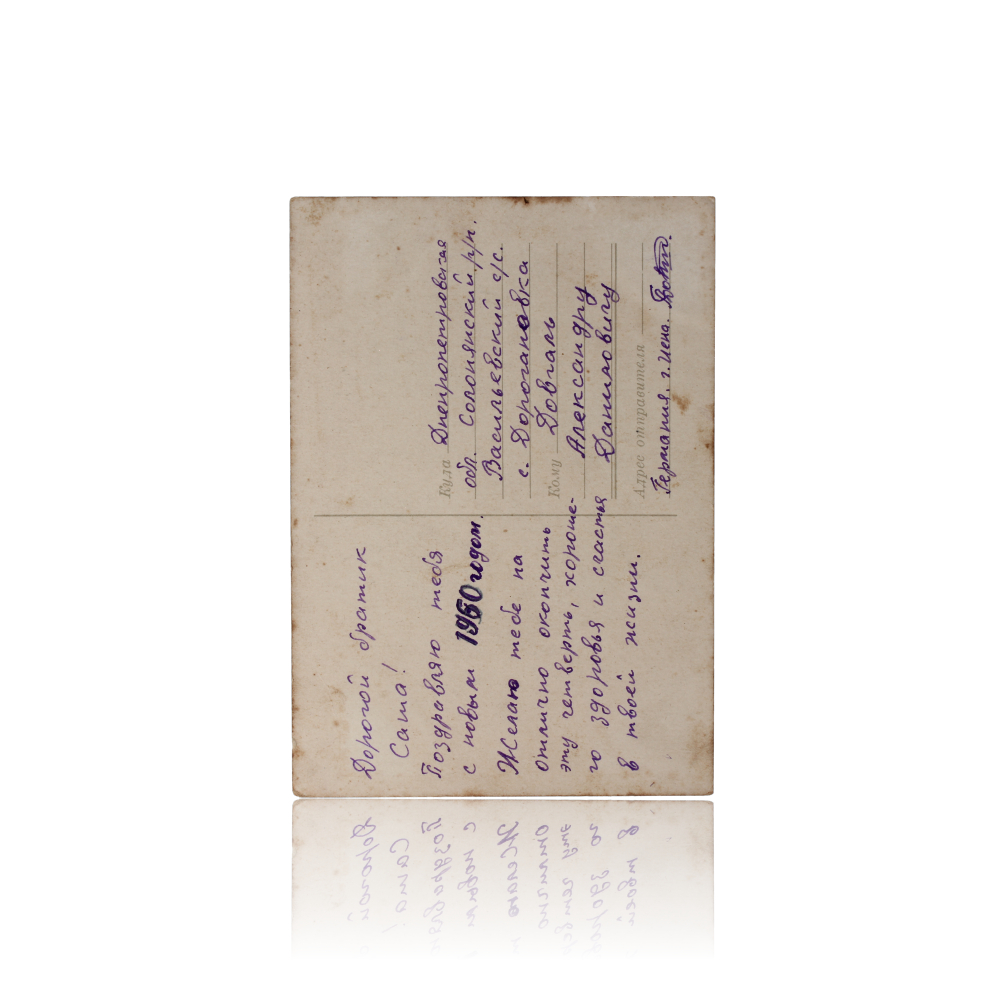 Дорогой братик
Саша!
Поздравляю тебя
с новым 1960 годом.
Желаю тебе на
отлично окончить
эту четверть, хороше-
го здоровья и счастья
в твоей жизни.
Куда Днепропетровская
обл. Солонянский р/н.
Васильевский с/с.
с. Дорогановка
Кому Довгаль
Александру
Даниловичу
Адрес отправителя
Германия. г. Иена.